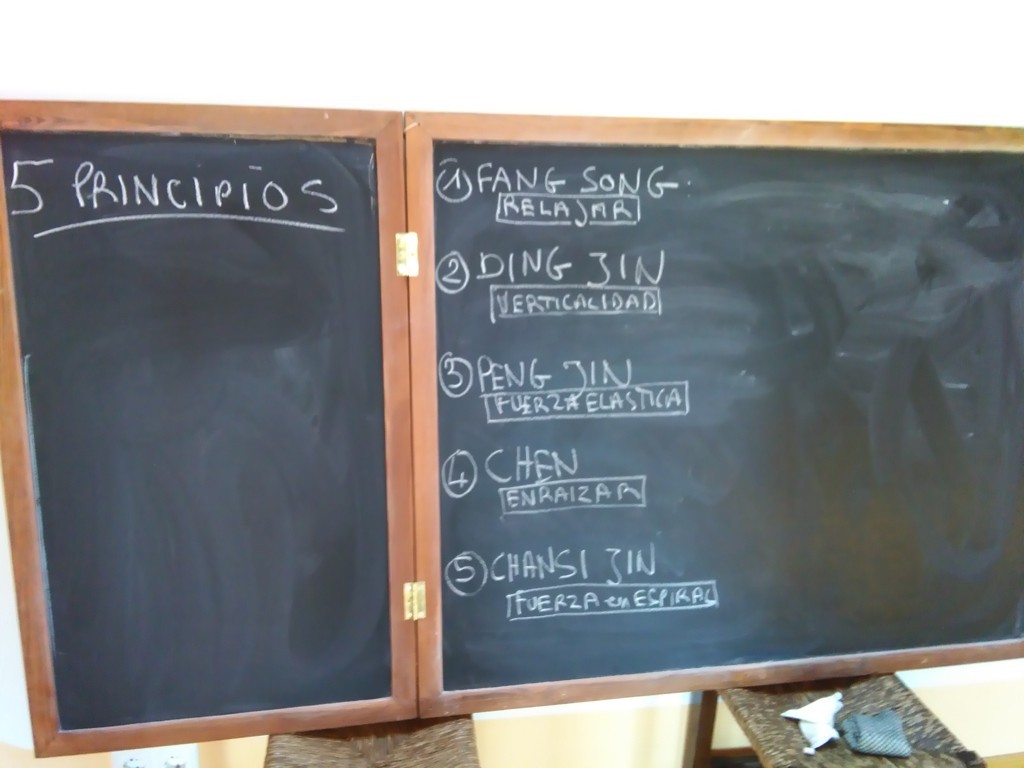 5 PRINCIPIOS
1 FANG SONG
RELAJAR
2 DING JIN
VERTICALIDAD
3 PENG JIN
FUERZA ELASTICA
4 CHEN
ENRAIZAR
5 CHANSI JIN
FUERZA en ESPIRAL